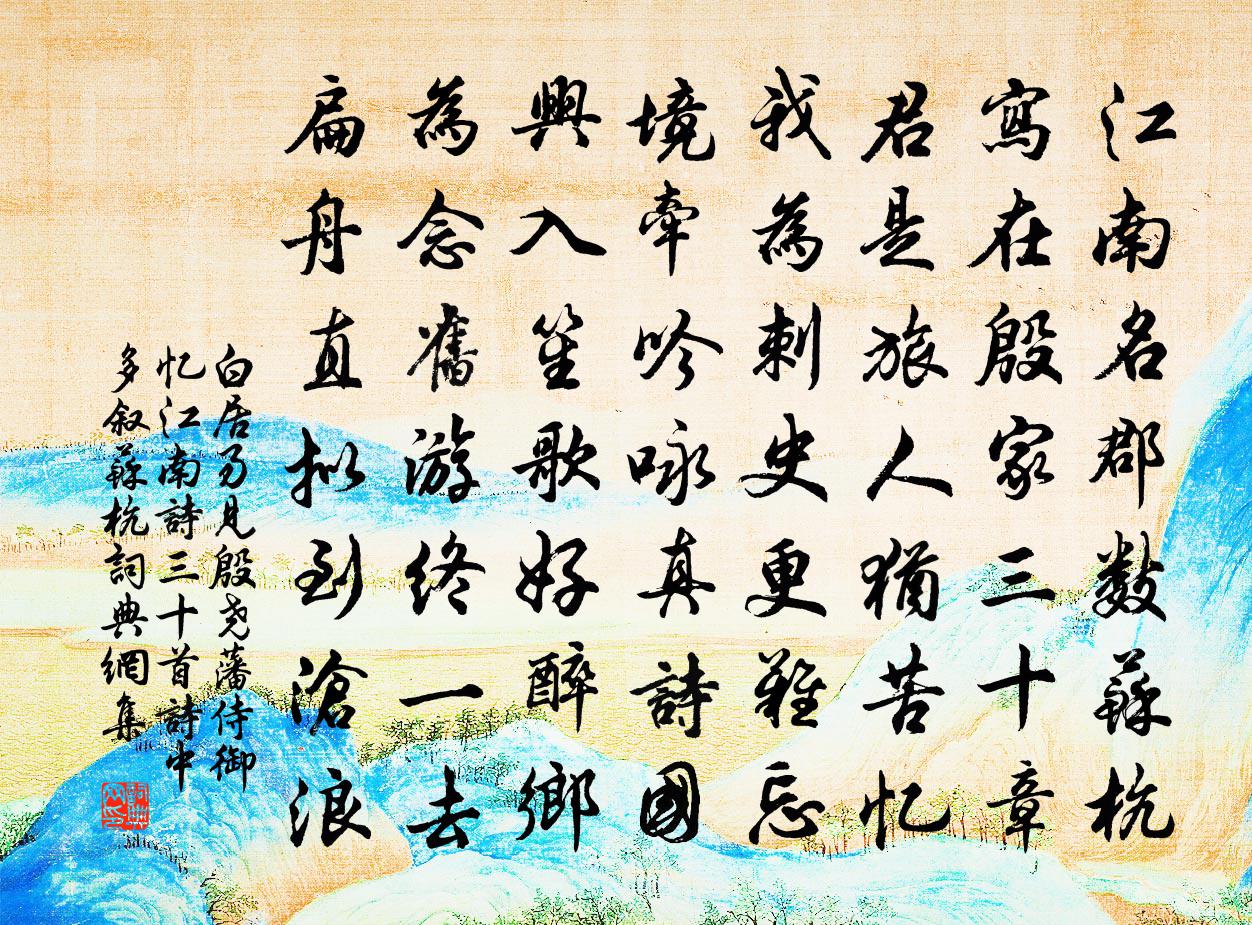 江南名郡數蘇杭
寫在殷家三十章
君是旅人猶苦忆
我為刺史更難忘
境牽吟咏真詩國
興入笙歌好醉鄉
為念舊游終一去
扁舟直拟到滄浪
白居易見殷尧藩侍御
忆江南詩三十首詩中
多叙蘇杭詞典網集